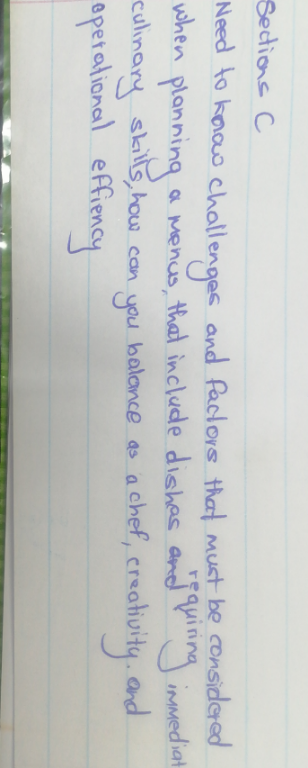 Sections C
Need to know challenges and factors that must be considered
when planning a menus, that include dishes and requiring immediat
culinary skills, how can you balance as a chef, creativity. and
operational effiency